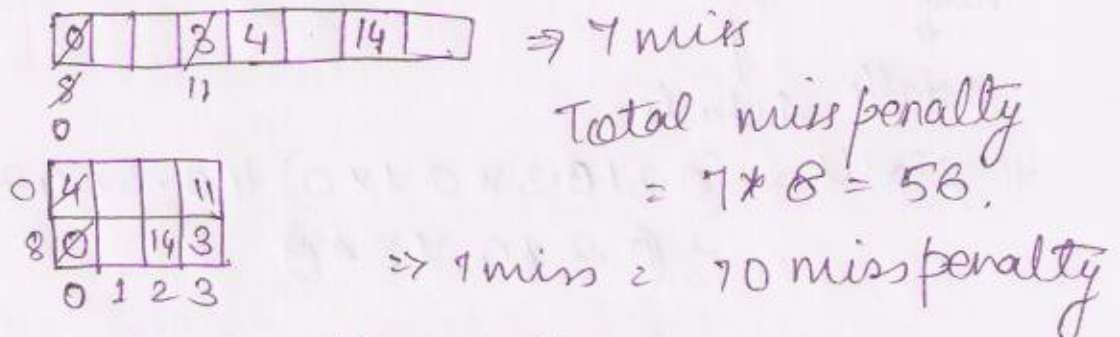 0 3 4 14 ⇒ 7 miss
8 11
0
Total miss penalty
= 7 * 8 = 56.
0 4 11
8 0 14 3
0 1 2 3
⇒ 7 miss = 70 miss penalty